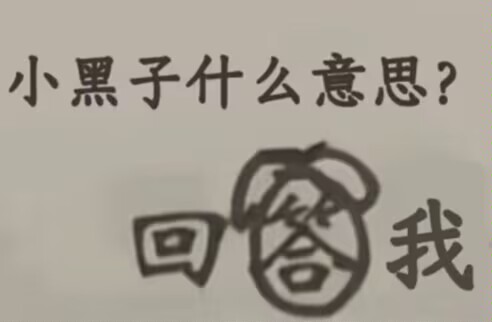 小黑子什么意思?
回答我